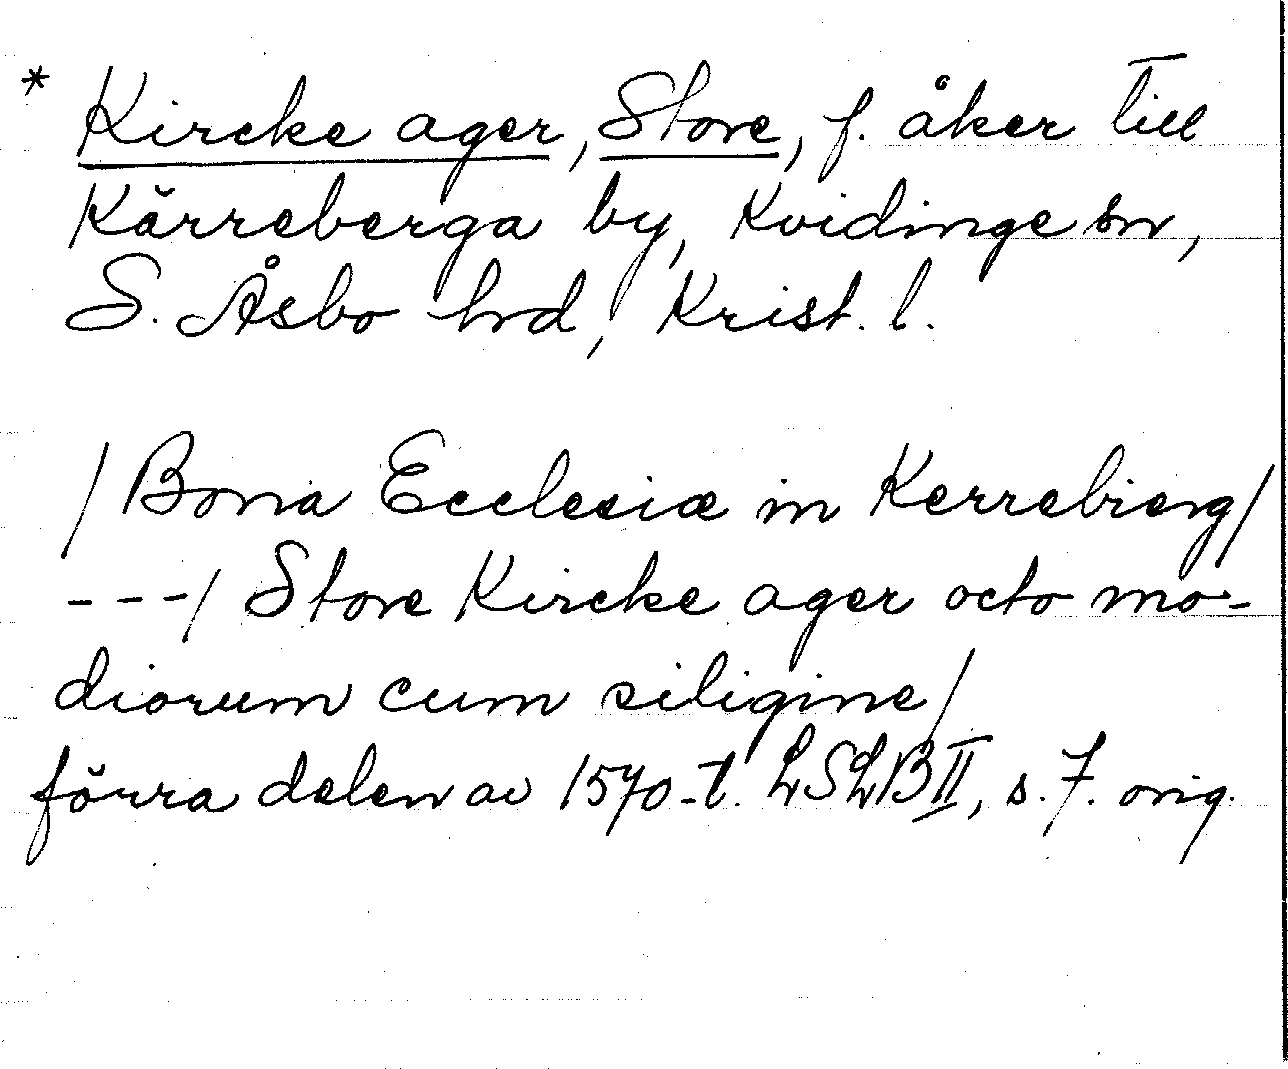 * Kircke ager, Store, f. åker till
Kärreberga by, Kvidinge sn,
S. Åsbo hrd, Krist. l.
/Bona Ecclesiæ in Kerrebierg/
---/ Store Kircke ager octo mo-
diorum cum siligine/
förra delen av 1570-t. LSLB II, s. 7. orig.